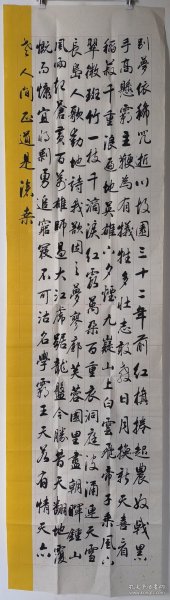 别夢依稀咒逝川故園三十二年前紅旗捲起農奴戟黑
手高懸霸主鞭為有犧牲多壯志敢教日月換新天喜看
稻菽千重浪遍地英雄下夕煙九嶷山上白雲飛帝子乘風下
翠微斑竹一枝千滴淚紅霞萬朵百重衣洞庭波涌連天雪
長島人歌動地詩我欲因之夢寥廓芙蓉國里盡朝暉鍾山
風雨起蒼黃百萬雄師過大江虎踞龍盤今勝昔天翻地覆
慨而慷宜將剩勇追窮寇不可沽名學霸王天若有情天亦
老人間正道是滄桑